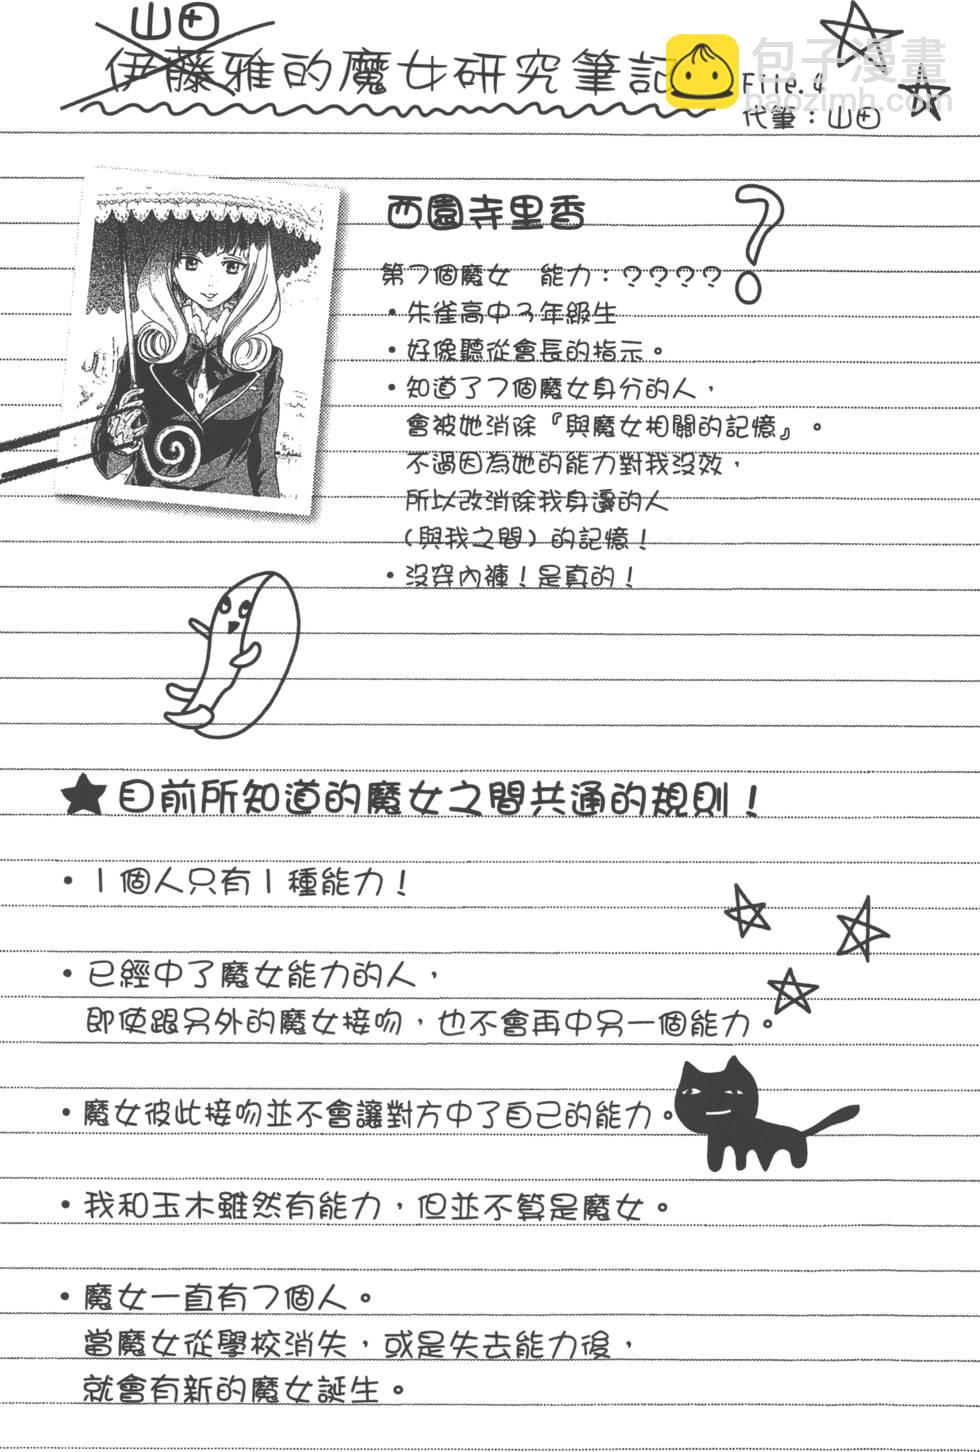 山田
伊藤雅的魔女研究筆記
包子漫畫
baozimh.com
File.4
代筆：山田
西園寺里香
第7個魔女　能力：？？？？
・朱雀高中3年級生
・好像聽從會長的指示。
・知道了7個魔女身分的人，
會被她消除『與魔女相關的記憶』。
不過因為她的能力對我沒效，
所以改消除我身邊的人
（與我之間）的記憶！
・沒穿內褲！是真的！
★目前所知道的魔女之間共通的規則！
・1個人只有1種能力！
・已經中了魔女能力的人，
即使跟另外的魔女接吻，也不會再中另一個能力。
・魔女彼此接吻並不會讓對方中了自己的能力。
・我和玉木雖然有能力，但並不算是魔女。
・魔女一直有7個人。
當魔女從學校消失，或是失去能力後，
就會有新的魔女誕生。